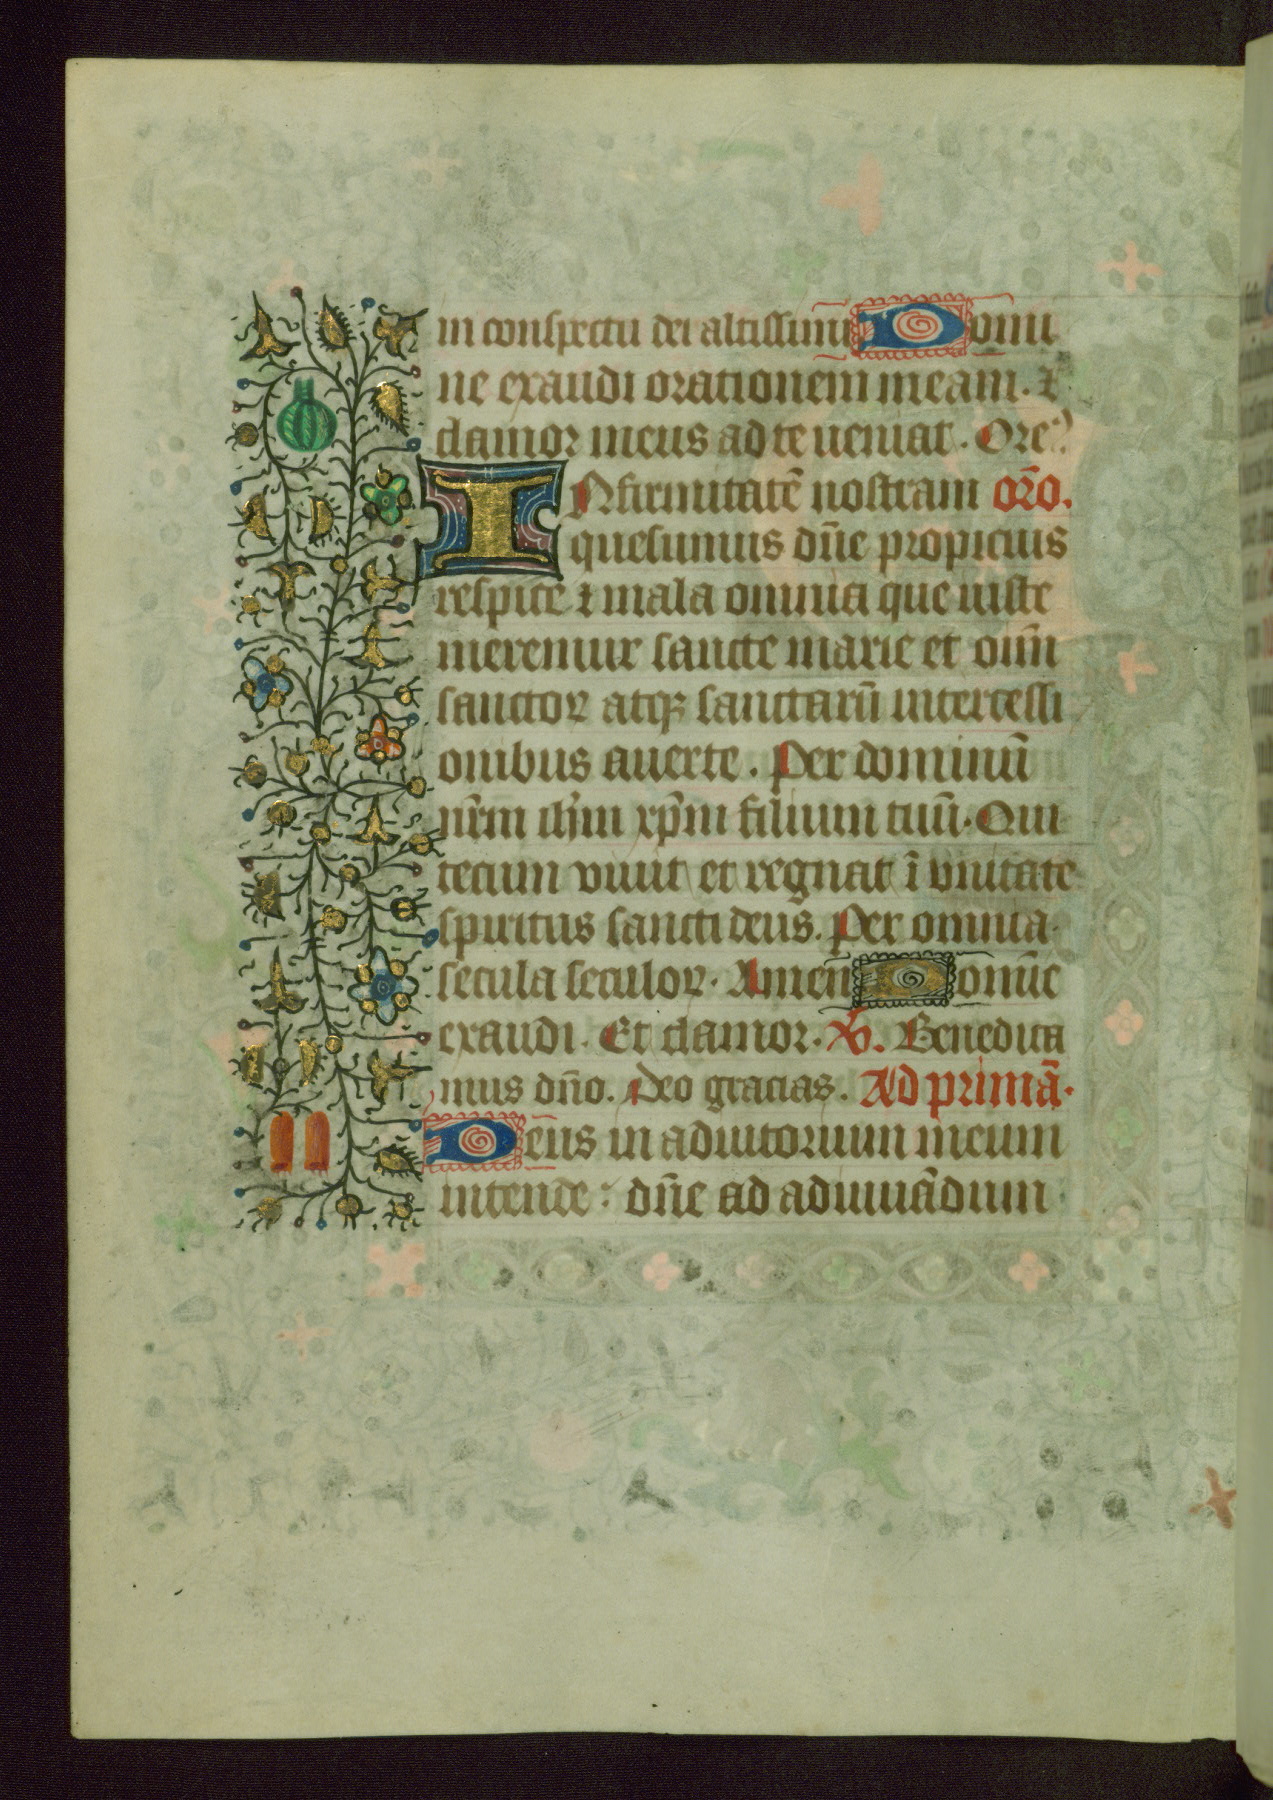 in conspectu dei altissimi Domi
ne exaudi orationem meam. ⁊
clamor meus ad te ueniat. Ore
INfirmitatē nostram or̄o.
quesumus dn̄e propicius
respice ⁊ mala omnia que iuste
meremur sancte marie et oīm
sanctoꝝ atqꝫ sanctarū intercessi
onibus auerte. Per dominū
nr̄m ih̄m xp̄m filium tuū. Qui
tecum viuit et regnat ī vnitate
spiritus sancti deus. Per omnia
secula seculoꝝ. Amen Domīe
exaudi. Et clamor. ℣. Benedica
mus dn̄o. Deo gracias. Ad primā.
Deus in adiutorium meum
intende: dn̄e ad adiuuādum